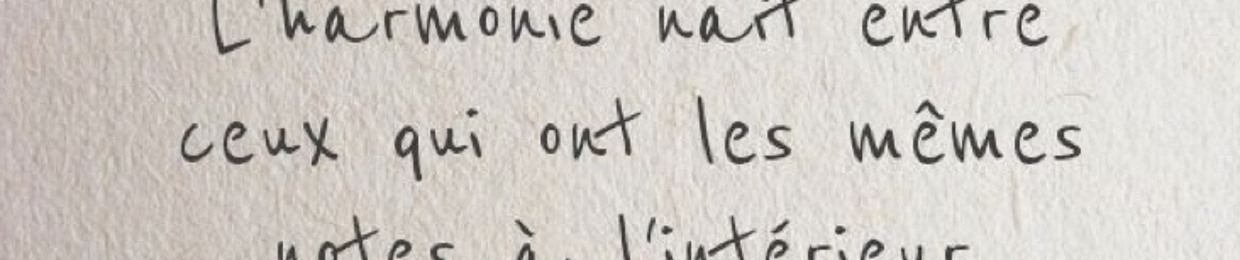 L'harmonie naît entre
ceux qui ont les mêmes
notes à l'intérieur